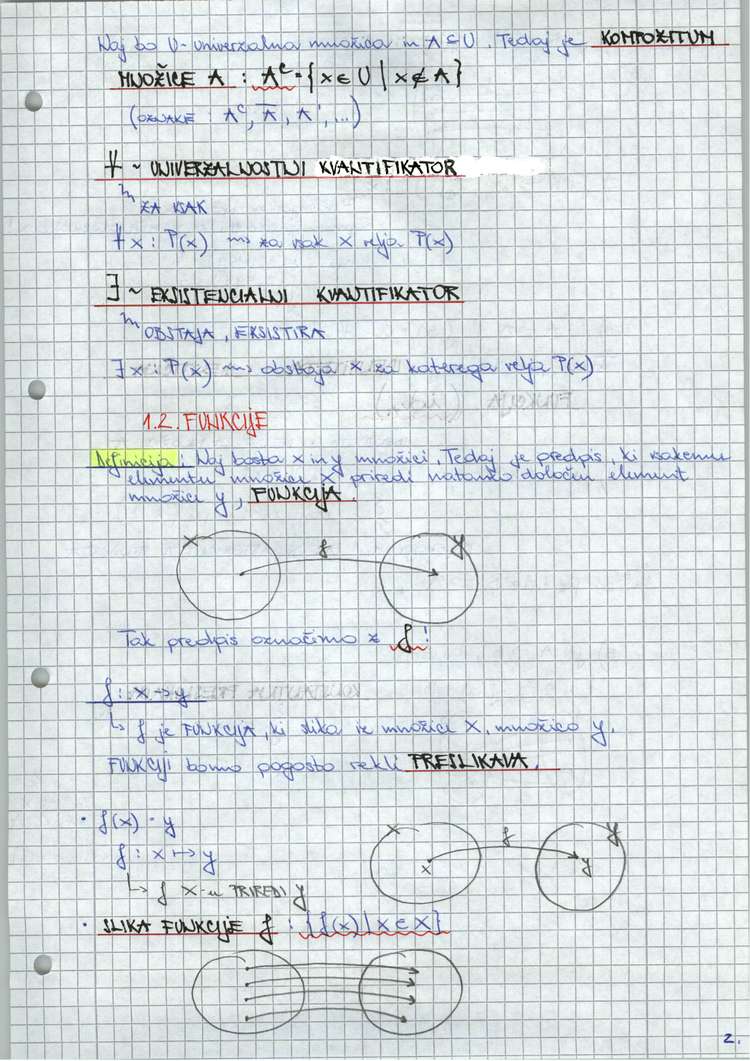 Naj bo U-univerzalna množica in A ⊆ U. Tedaj je KOMPOZITUM
MNOŽICE A : Aᶜ = {x ∈ U | x ∉ A}
(OZNAKE : Aᶜ, A̅, A', ...)
∀ ~ UNIVERZALNOSTNI KVANTIFIKATOR
ZA VSAK
∀x : P(x) ~> za vsak x velja P(x)
∃ ~ EKSISTENCIALNI KVANTIFIKATOR
OBSTAJA, EKSISTIRA
∃x : P(x) ~> obstaja x za katerega velja P(x)
1.2. FUNKCIJE
Definicija : Naj bosta X in Y množici. Tedaj je predpis, ki vsakemu
elementu množice X priredi natanko določen element
množice Y, FUNKCIJA.
X f Y
Tak predpis označimo z f!
f : X → Y
↳ f je FUNKCIJA, ki slika iz množice X, množico Y.
FUNKCIJI bomo pogosto rekli PRESLIKAVA.
• f(x) = y
X f Y
f : x ↦ y
x y
↳ f X-u PRIREDI y
• SLIKA FUNKCIJE f : {f(x) | x ∈ X}
2.